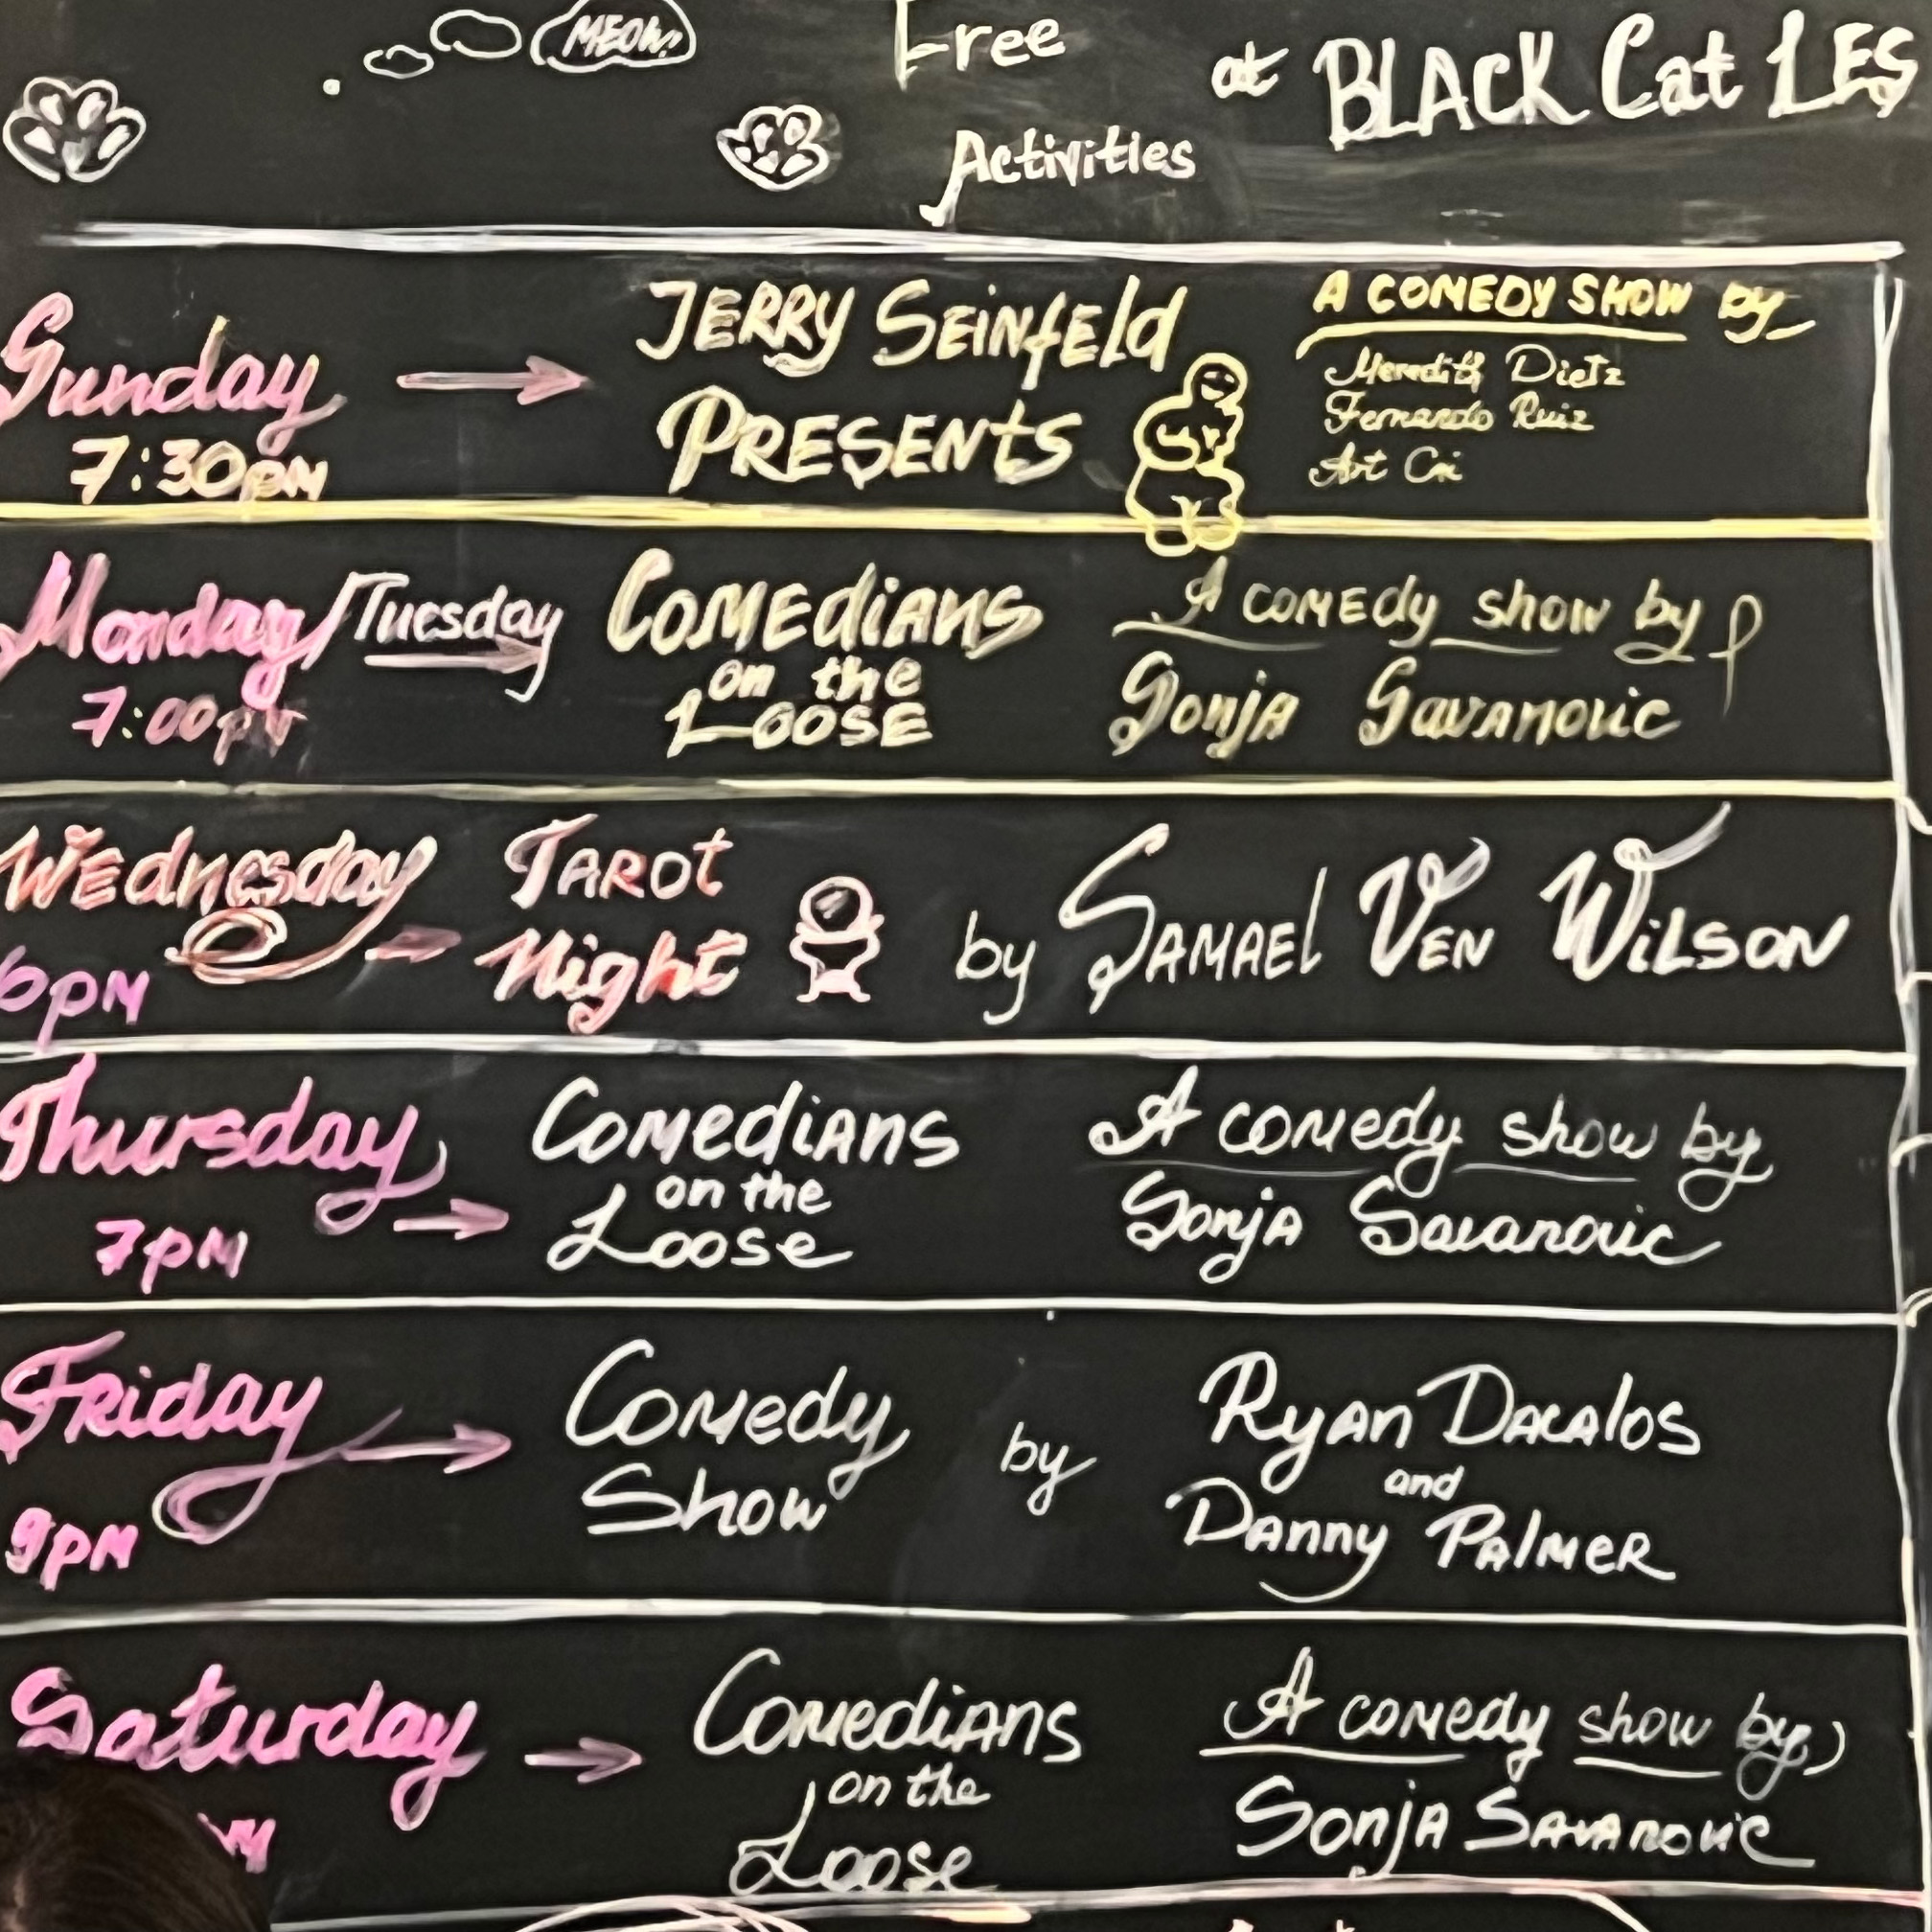 MEOW!
Free
Activities
at BLACK Cat LES
Sunday
7:30PM
JERRY SEINfELd
PRESENtS
A COMEDY SHOW by
Meredith Dietz
Fernando Ruiz
Art Cri
Monday/Tuesday
7:00pM
COMEdiANS
on the
LOOSE
A COMEdy show by
SonjA SavANovic
WEdnesday
6PM
TAROt
Night
by SAMAEl VEN WiLSON
Thursday
7PM
ComediANs
on the
Loose
A comedy show by
SonjA Savanovic
FRiday
9PM
Comedy
Show
by
RyAn DACAlos
and
DAnny PAlMeR
Saturday
ComediANs
on the
Loose
A comedy show by
SonjA SAVANOVIC